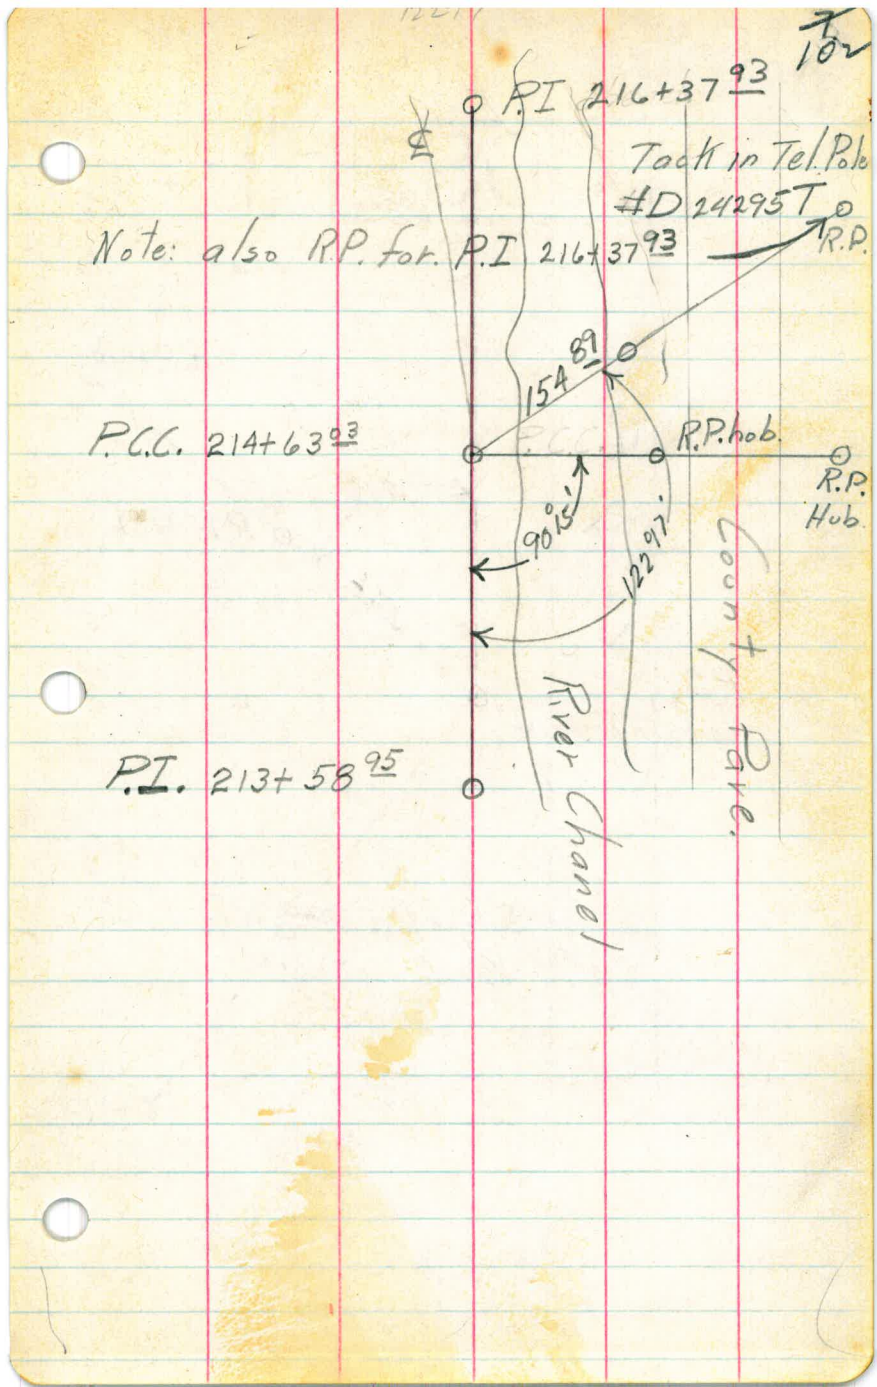 7/102
P.I 216+37 93
℄
Tack in Tel. Pole
#D 24295T
R.P.
Note: also R.P. for. P.I 216+37 93
154 89
P.C.C. 214+63 03
R.P. hob.
R.P.
Hub
90°15'
County Pave.
River Chanel
P.I. 213+58 95